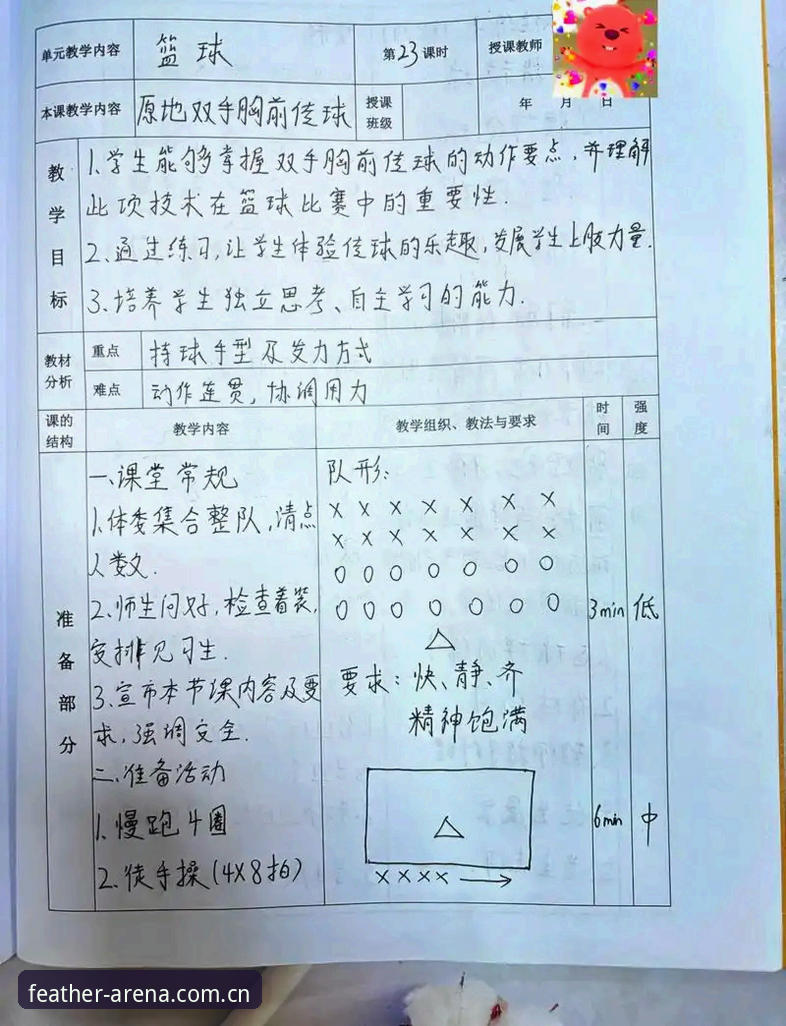 单元教学内容 篮球 第23课时 授课教师
本课教学内容 原地双手胸前传球 授课班级 年 月 日
教学目标
1.学生能够掌握双手胸前传球的动作要点，并理解
此项技术在篮球比赛中的重要性.
2.通过练习,让学生体验传球的乐趣,发展学生上肢力量.
3.培养学生独立思考、自主学习的能力.
教材分析
重点 持球手型及发力方式
难点 动作连贯,协调用力
课的结构 教学内容 教学组织、教法与要求 时间 强度
准备部分
一.课堂常规
1.体委集合整队,清点
人数.
2.师生问好,检查着装,
安排见习生.
3.宣布本节课内容及要
求,强调安全.
二.准备活动
1.慢跑4圈
2.徒手操(4X8拍)
队形:
× × × × × × ×
× × × × × × ×
O O O O O O O
O O O O O O O
△
要求:快、静、齐
精神饱满
△
××××→
3min 低
6min 中
feather-arena.com.cn